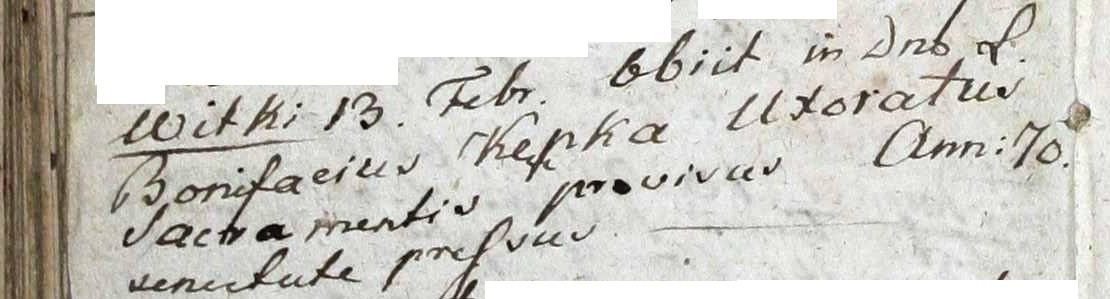 Witki 13. Febr. Obiit in Dno L.
Bonifacius Kępka Uxoratus
Sacramentis provisus Ann: 70.
senectute pressus